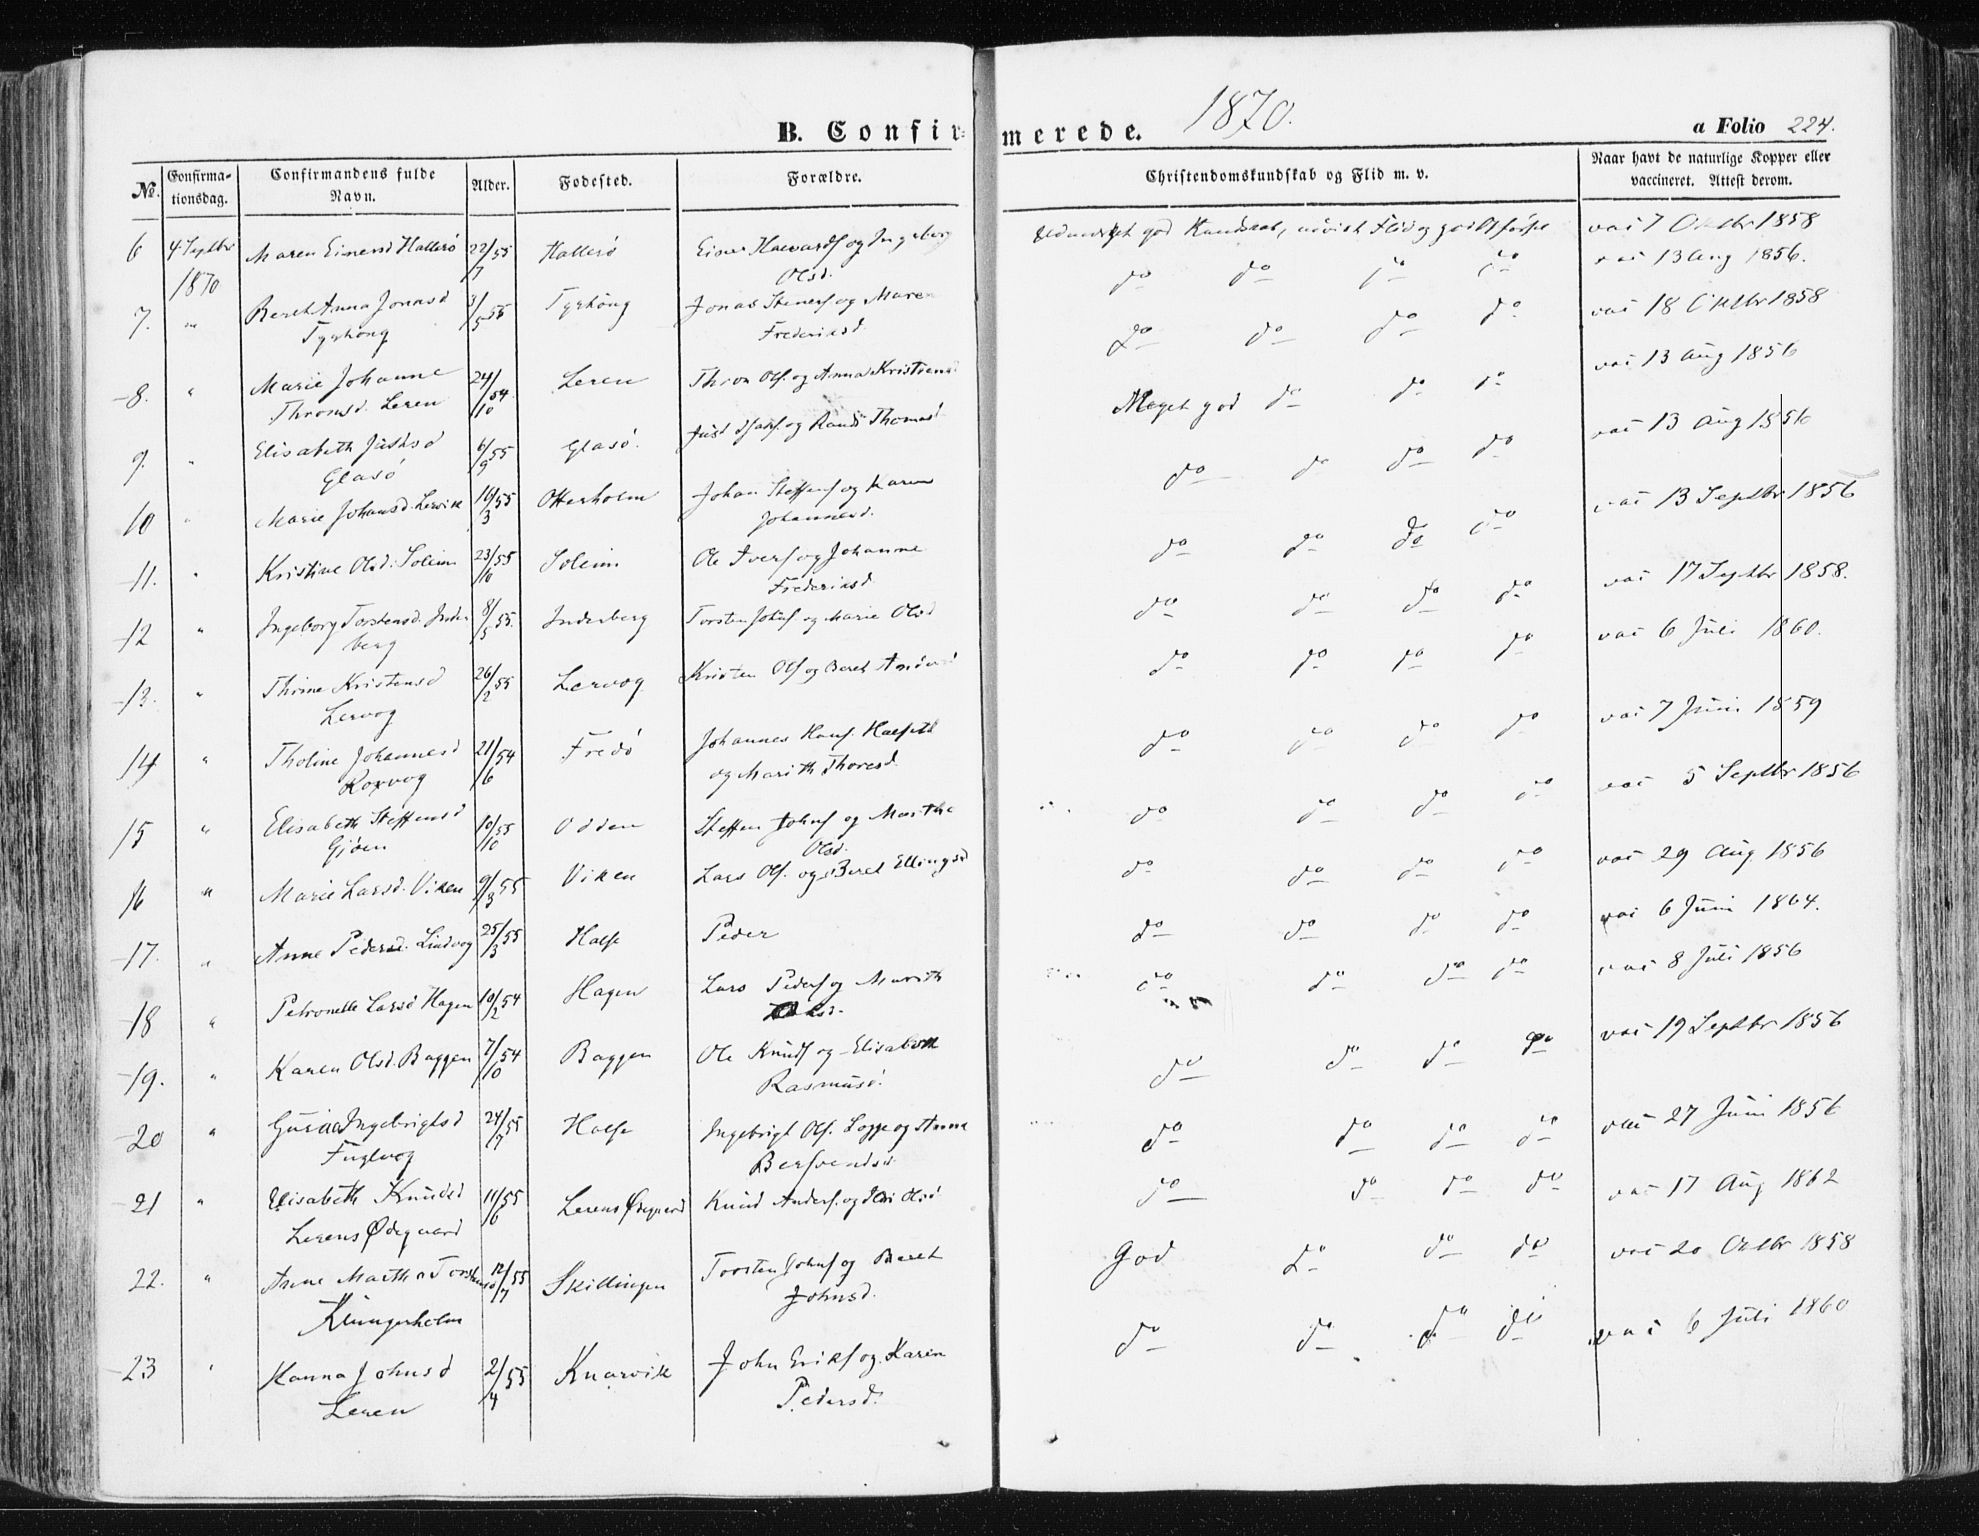 1870.
B. Confirmerede.
a Folio 224.
No. Confirmationsdag. Confirmandens fulde Navn. Alder. Fødested. Forældre. Christendomskundskab og Flid m. v. Naar havt de naturlige Kopper eller vaccineret. Attest derom.
6 4 Septbr 1870 Maren Einersd Hallesø 22/7 55 Hallesø Einer Haavardsf og Ingeborg Olsd. god Kundskab, Flid og vac 7 Oktbr 1858
7. " Beret Anna Jonasd Tyrhoug 3/5 55 Tyrhoug Jonas Stenersf og Maren Frederiksd do do do do vac 13 Aug 1856.
8. " Marie Johanne Thronsd. Leren 24/10 54 Leren Thron Olsf. og Anna Kristiensd do do do do vac 18 Oktbr 1858
9. " Elisabeth Justsd Glasø 6/9 55 Glasø. Just og Randi Thomasd Meget god do do do vac 13 Aug 1856
10 " Marie Johansd. Lervik 16/3 55 Otterholm Johan Steffensf og Karen Johannesd. do do do do vac 13 Aug 1856
11. " Kristine Olsd. Soleim 23/10 55 Soleim Ole Iversf og Johanne Frederiksd. do do do do vac 13 Septbr 1856
12 " Ingeborg Torstensd. Inderberg 8/5 55. Inderberg Torsten Johnsf og Marie Olsd do do do do vac 17 Septbr 1858.
13. " Thrine Kristensd Lervog 26/2 55 Lervog Kristen Olsf og Beret Andersd do do do do vac 6 Juli 1860.
14 " Tholine Johannesd Korsvog 21/6 54 Fredø Johannes Hansf. Halseth og Marith Thoresd. do do do do vac 7 Juni 1859
15 " Elisabeth Steffensd Gjøen 10/10 55 Odden Steffen Johnsf og Marthe Olsd. do do do do vac 5 Septbr 1856
16 " Marie Larsd. Viken 9/3 55 Viken Lars Olsf. og Beret Ellingsd do do do do vac 29 Aug 1856
17. " Anne Pedersd. Lindvog 25/3 55 Halse Peder do do do do vac 6 Juni 1864.
18 " Petronelle Larsd Hagen 10/2 54 Hagen Lars Pedersf og Marith do do do do vac 8 Juli 1856
19. " Karen Olsd. Baggen 7/10 54 Baggen Ole Knudsf og Elisabeth Rasmusd. do do do do vac 19 Septbr 1856
20 " Guria Ingebrigtsd Fuglvog 24/7 55 Halse Ingebrigt Olsf. Loppe og Anna Bersvendsd. do do do do vac 27 Juni 1856
21 " Elisabeth Knudsd Lerens Ødegaard 11/6 55 Lerens Ødegaard Knud Andersf. og do do do do vac 17 Aug 1862
22. " Anne Martha Torstensd Klungerholm 12/7 55 Skillingen Torsten Johnsf og Beret Johnsd. God do do do vac 20 Oktbr 1858
23 " Hanna Johnsd Leren 2/4 55 Knarvik John Eriksf og Karen Pedersd. do do do do vac 6 Juli 1860